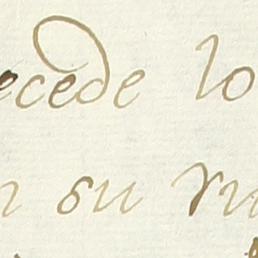 ecede lo
n su